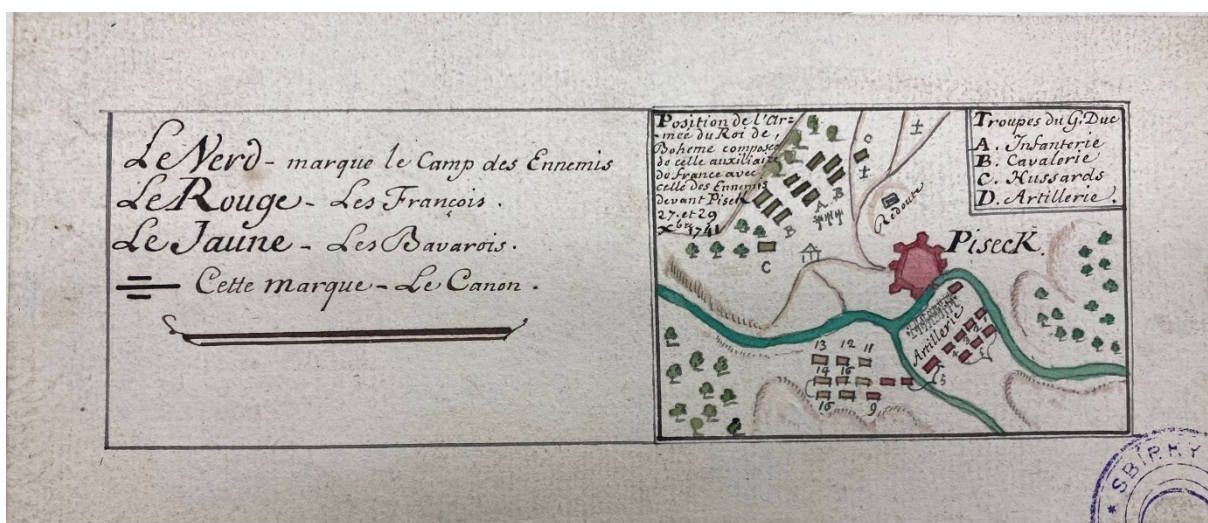 Le Verd - marque le Camp des Ennemis
Le Rouge - Les François .
Le Jaune - Les Bavarois .
Cette marque - Le Canon .
Position de l'Ar-
-mée du Roi de
Boheme composée
de celle auxiliaire
de France avec
celle des Ennemis
devant Piseck
27. et 29
Xbre 1741
Troupes du G. Duc
A. Infanterie
B. Cavalerie
C. Hussards
D. Artillerie .
C
A
B
B
C
Redoute
Piseck.
Artillerie
13 12 11
14 16
15 9
SBÍRKY